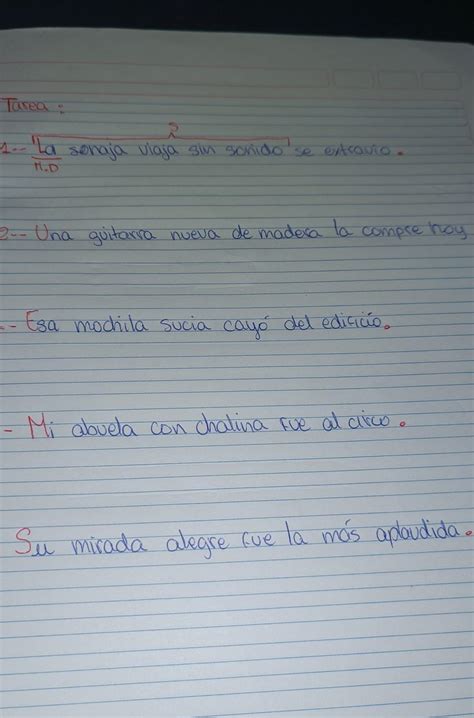 Tarea :
S
1.- La sonaja viaja sin sonido se extravio.
M.D
2.- Una guitarra nueva de madera la compre hoy
.- Esa mochila sucia cayó del edificio.
- Mi abuela con chalina fue al circo.
Su mirada alegre fue la más aplaudida.